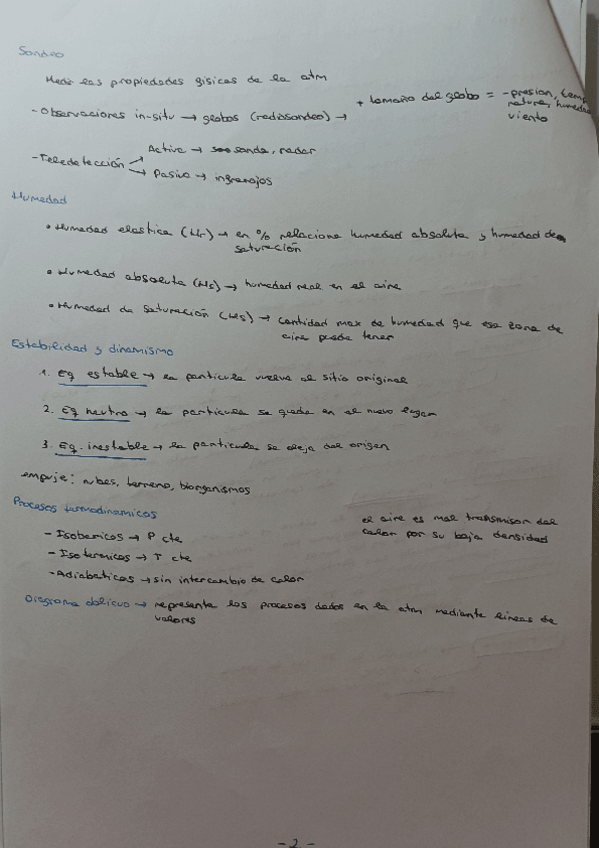 Sondeo
Medir las propiedades gisicas de la atm
-Observaciones in-situ → globos (radiosondeo) → + tamaño del globo = -presion, temp
ratura, humedad
viento
-Teledetección → Activa → sonda, radar
→ Pasiva → ingrarojos
Humedad
• Humedad elastica (Hr) → en % relaciona humedad absoluta y humedad de
saturación
• Humedad absoluta (Hs) → humedad real en el aire
• Humedad de saturación (Ws) → cantidad max de humedad que esa zona de
aire puede tener
Estabilidad y dinamismo
1. Eq estable → la particula vuelve al sitio original
2. Eq neutro → la particula se queda en el nuevo lugar
3. Eq. inestable → la particula se aleja del origen
empuje: nubes, terreno, biorganismos
Procesos termodinamicos
el aire es mal transmisor del
calor por su baja densidad
- Isobaricos → P cte
- Isotermicos → T cte
-Adiabaticos → sin intercambio de calor
Diagrama oblicuo → representa los procesos dados en la atm mediante lineas de
valores
- 2 -